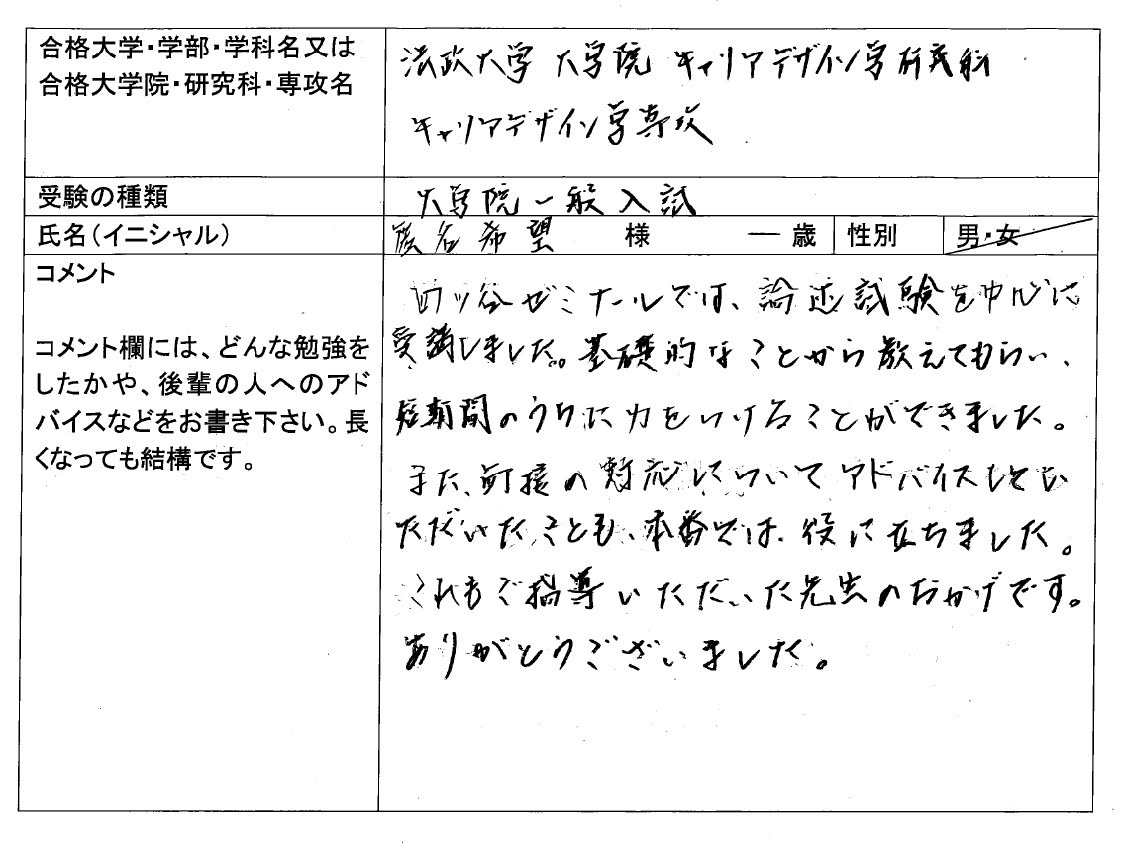 合格大学・学部・学科名又は
合格大学院・研究科・専攻名
法政大学 大学院 キャリアデザイン学研究科
キャリアデザイン学専攻
受験の種類
大学院一般入試
氏名(イニシャル)
匿名希望 様 ー歳 性別 男・女
コメント
コメント欄には、どんな勉強を
したかや、後輩の人へのアド
バイスなどをお書き下さい。長
くなっても結構です。
四ッ谷ゼミナールでは、論述試験を中心に
受講しました。基礎的なことから教えてもらい、
短期間のうちに力をつけることができました。
また、面接の対応についてアドバイスをい
ただいたことも、本番では、役に立ちました。
これもご指導いただいた先生のおかげです。
ありがとうございました。